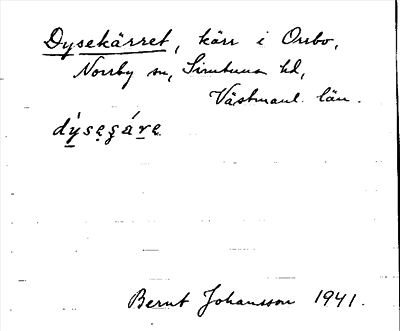 Dysekärret, kärr i Orrbo,
Norrby sn, Simtuna hd,
Västmanl. län.
dýsegáre
Bernt Johansson 1941.